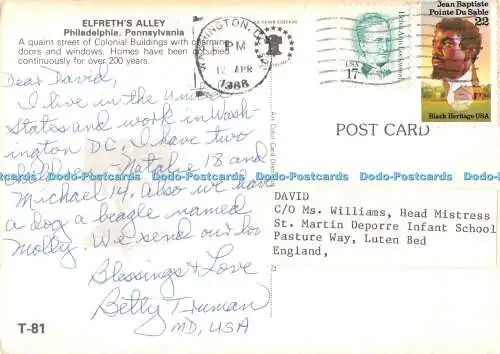 ELFRETH'S ALLEY
Philadelphia, Pennsylvania
A quaint street of Colonial Buildings with charming
doors and windows. Homes have been occupied
continuously for over 200 years.
Dear David,
I live in the United
States and work in Wash-
ington DC. I have two
children - Natalie 18 and
Michael 14. Also we have
a dog a beagle named
Molly. We send our
Blessings & Love
Betty Truman
MD, USA
T-81
WASHINGTON, DC
PM
12 APR
1988
USA
17
Jean Baptiste
Pointe Du Sable
22
Black Heritage USA
POST CARD
DAVID
C/O Ms. Williams, Head Mistress
St. Martin Deporre Infant School
Pasture Way, Luten Bed
England,
Dodo-Postcards Dodo-Postcards Dodo-Postcards Dodo-Postcards